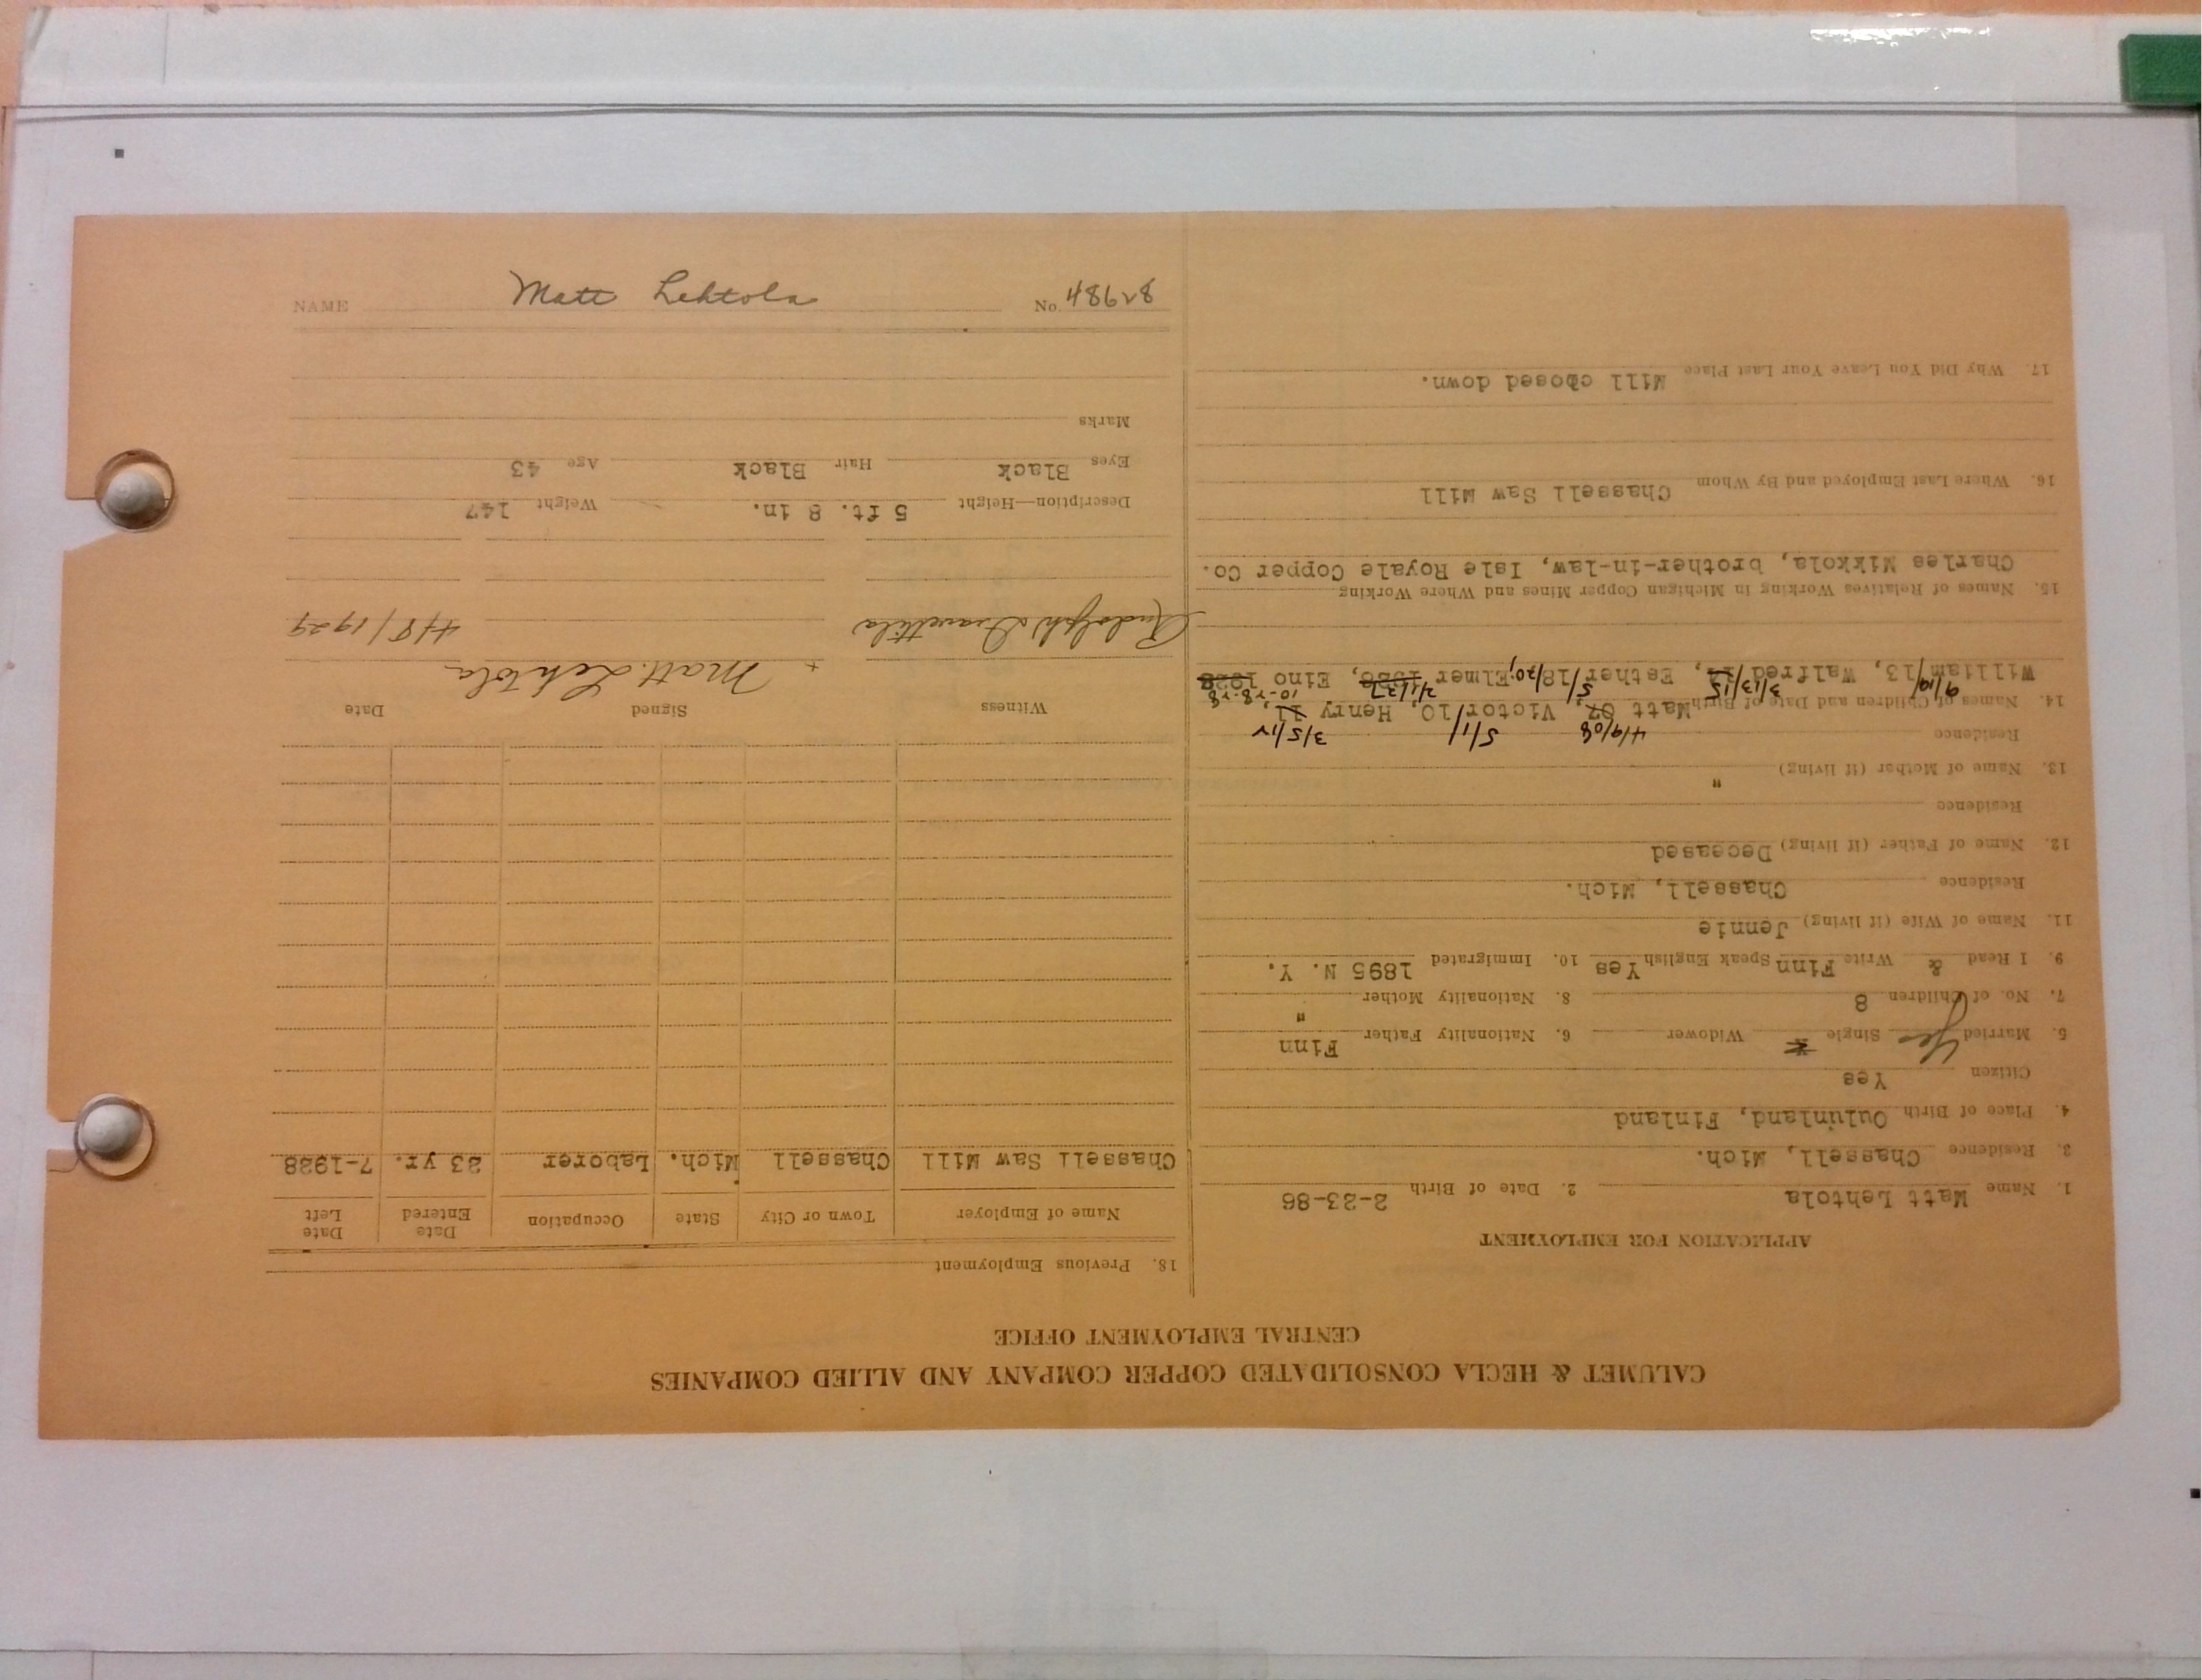 CALUMET & HECLA CONSOLIDATED COPPER COMPANY AND ALLIED COMPANIES
CENTRAL EMPLOYMENT OFFICE
APPLICATION FOR EMPLOYMENT
1. Name Matt Lehtola 2. Date of Birth 2-23-86
3. Residence Chassell, Mich.
4. Place of Birth Oulunland, Finland
Citizen Yes
5. Married Yes Single Widower 6. Nationality Father Finn
7. No. of Children 8 8. Nationality Mother "
9. I Read & Write Finn Speak English Yes 10. Immigrated 1895 N. Y.
11. Name of Wife (if living) Jennie
Residence Chassell, Mich.
12. Name of Father (if living) Deceased
Residence
13. Name of Mother (if living) "
Residence
4/9/08 5/1/ 3/5/12
14. Names of Children and Date of Birth Matt 07, Victor/10, Henry 11,
9/19/ 3/13/15 5/ 2/1/27 10-28-28
William/13, Walfred/14, Esther/18/20, Elmer 1926, Eino 1928
15. Names of Relatives Working in Michigan Copper Mines and Where Working
Charles Mikkola, brother-in-law, Isle Royale Copper Co.
16. Where Last Employed and By Whom Chassell Saw Mill
17. Why Did You Leave Your Last Place Mill closed down.
18. Previous Employment
Name of Employer Town or City State Occupation Date Entered Date Left
Chassell Saw Mill Chassell Mich. Laborer 23 yr. 7-1928
Witness Signed Date
Rudolph + Matt Lehtola 4/8/1929
Description—Height 5 ft. 8 in. Weight 147
Eyes Black Hair Black Age 43
Marks
NAME Matt Lehtola No. 48628